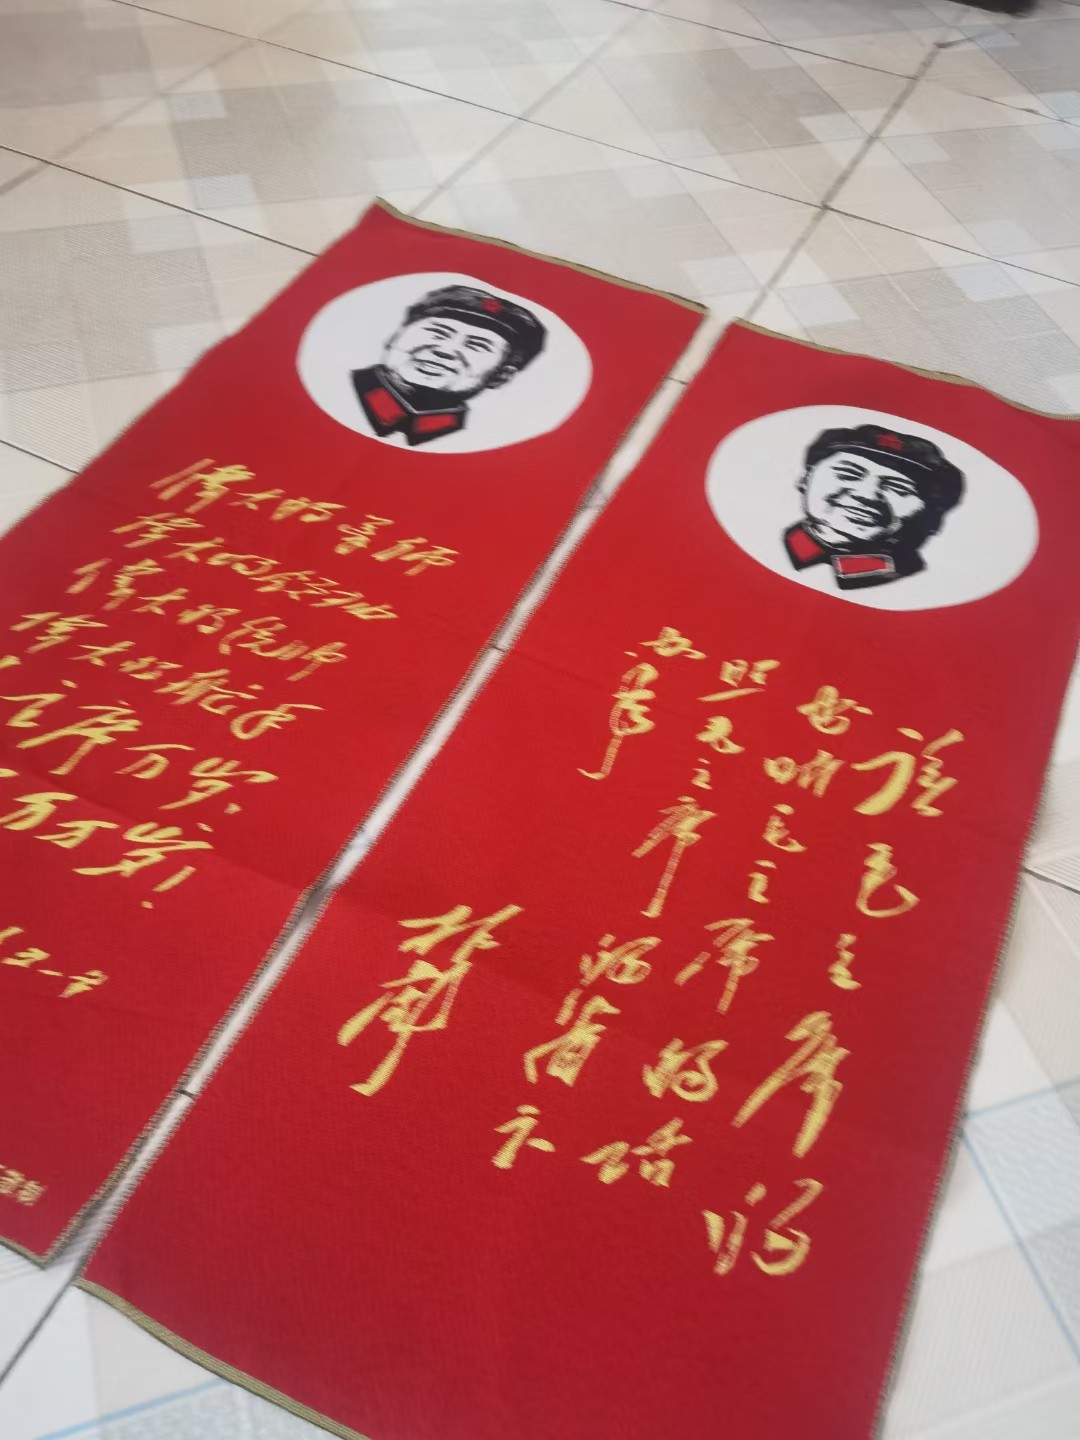 偉大的导师
偉大的领袖
偉大的统帅
偉大的舵手
主席万岁!
万万岁!
读毛主席的
书听毛主席的话
照毛主席的指示
办事
林彪